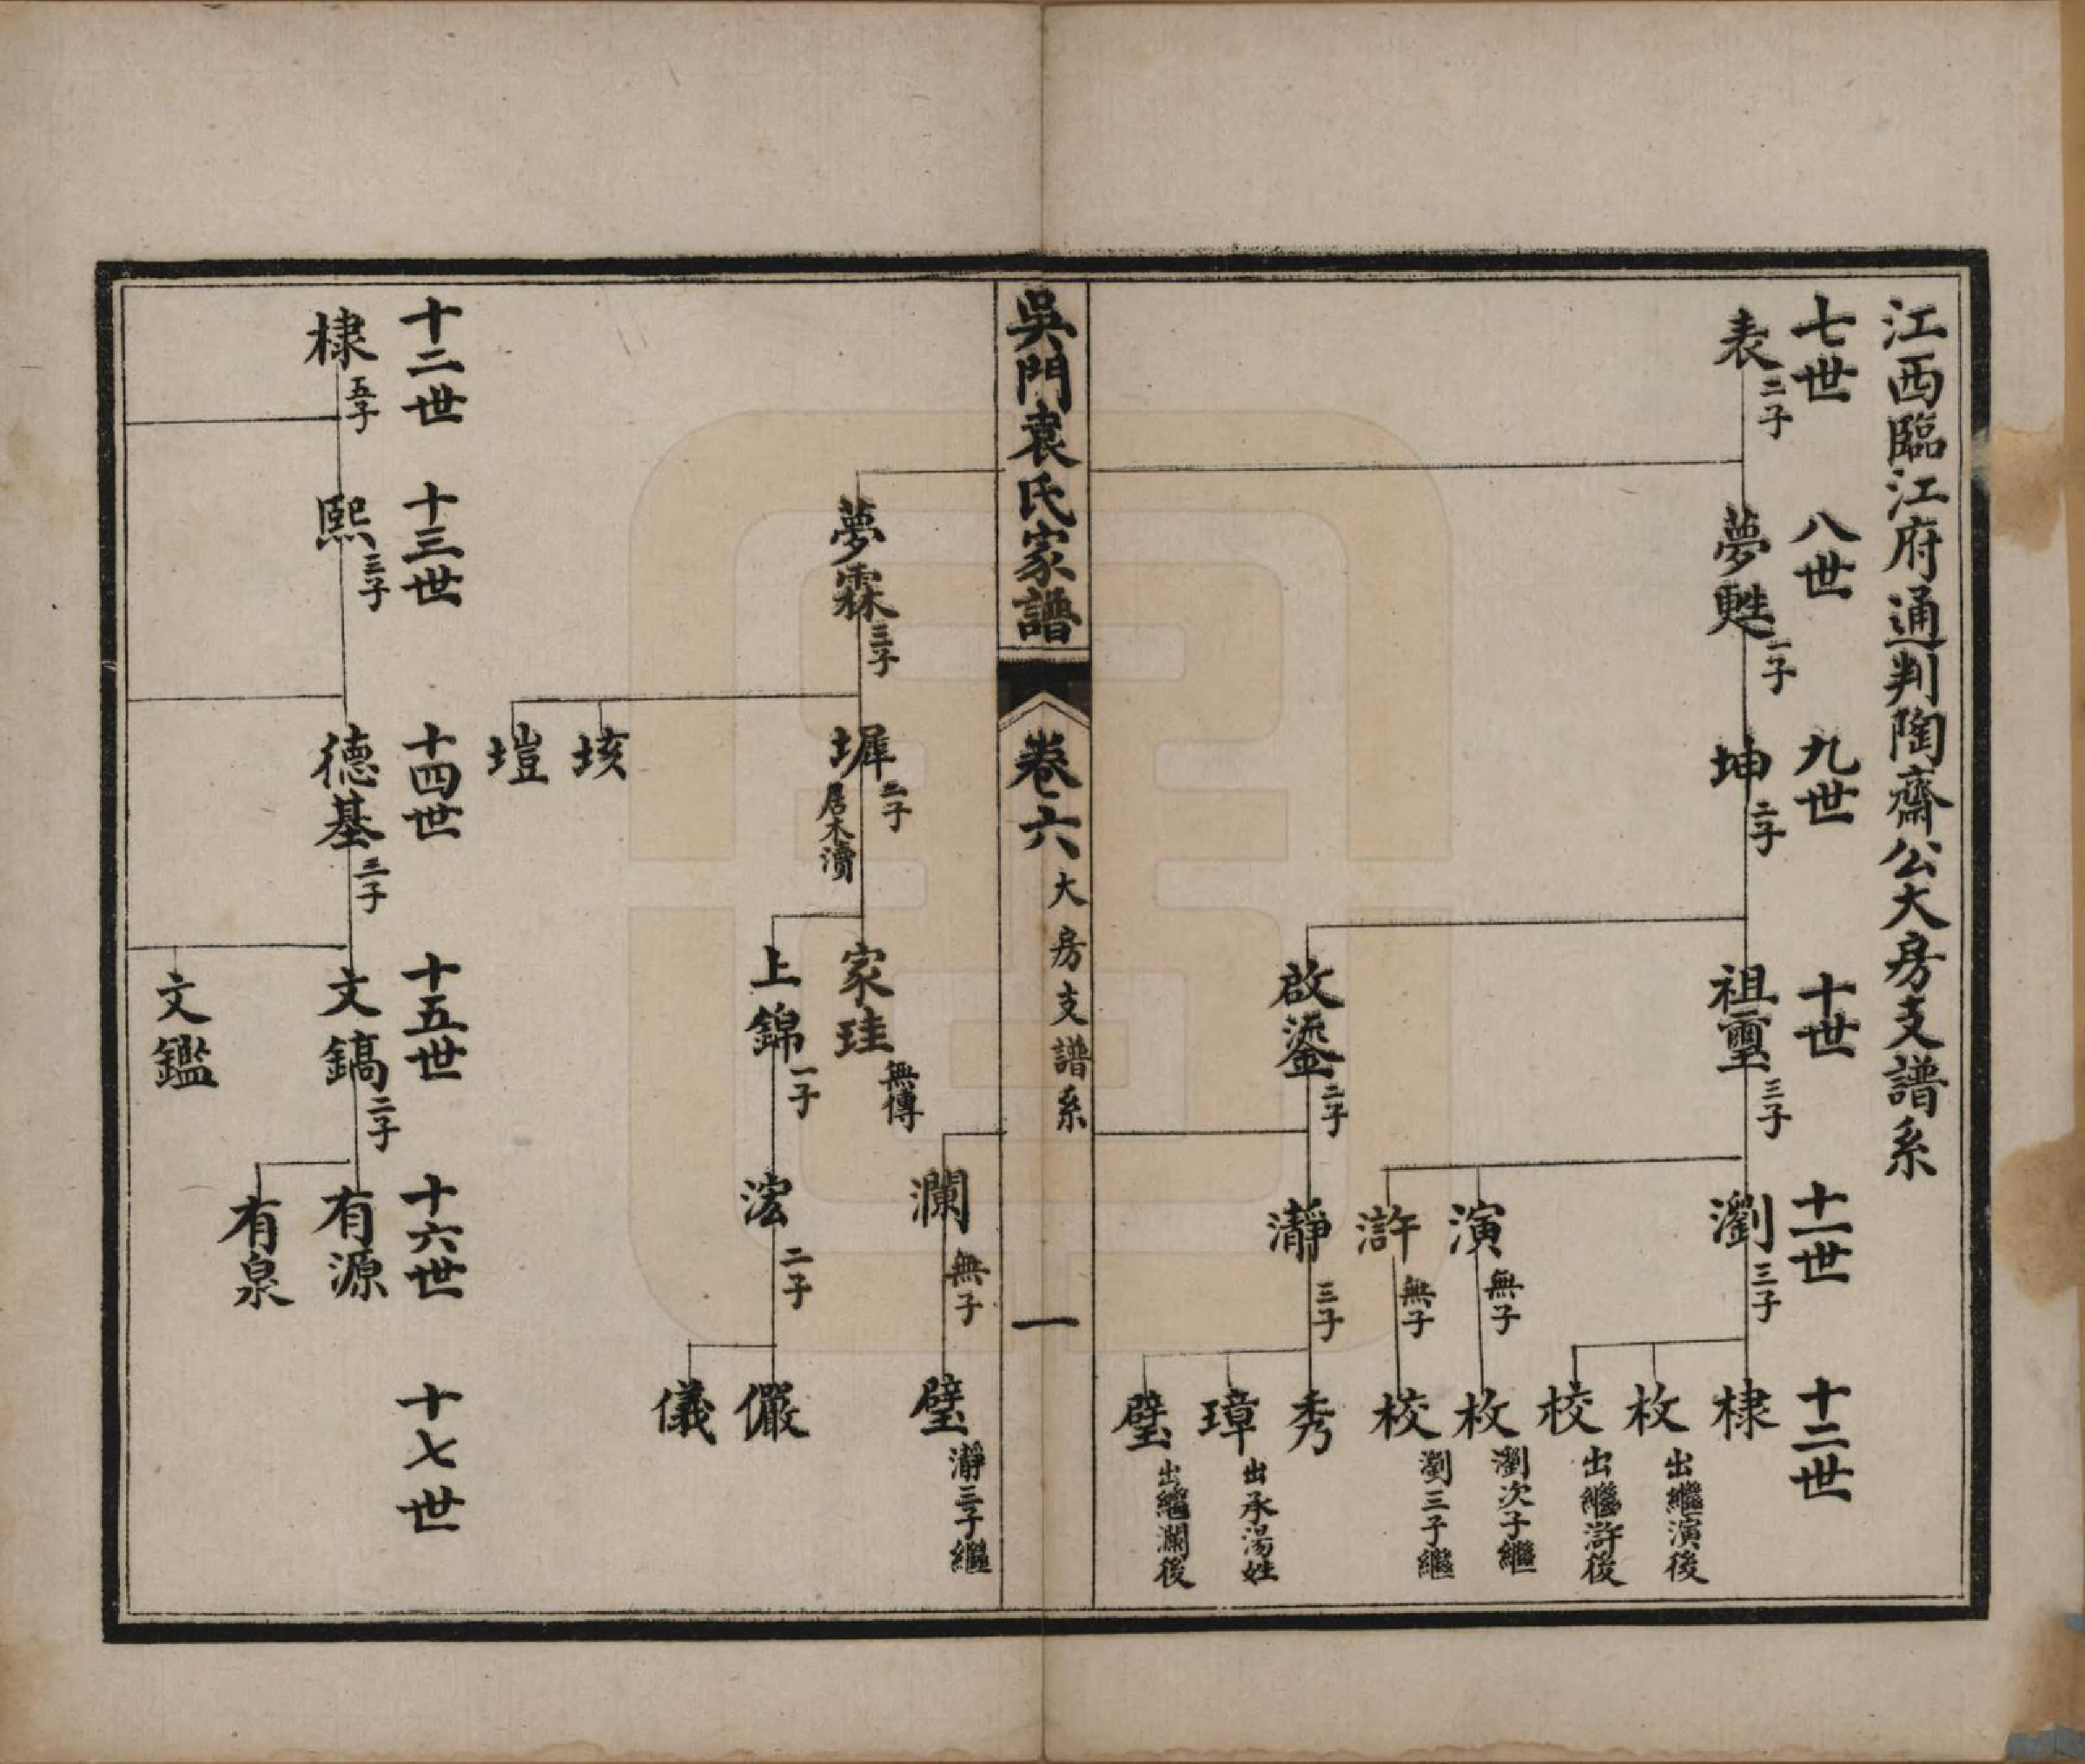 江西臨江府通判陶齋公大房支譜系
七世
八世
九世
十世
十一世
十二世
表 二子
夢甦 一子
坤 二子
祖璽 三子
瀏 三子
棣
枚 出繼演後
校 出繼滸後
演 無子
枚 瀏次子繼
滸 無子
校 瀏三子繼
啟鎏 二子
瀞 三子
秀
璋 出承湯姓
璧 出繼瀾後
吳門袁氏家譜
卷六
大房支譜系
一
瀾 無子
璧 瀞三子繼
夢霖 三子
墀 二子 居木瀆
家珪 無傳
上錦 一子
浤 二子
儼
儀
垓
塏
十二世
十三世
十四世
十五世
十六世
十七世
棣 五子
熙 三子
德基 三子
文鎬 二子
有源
有泉
文鑑